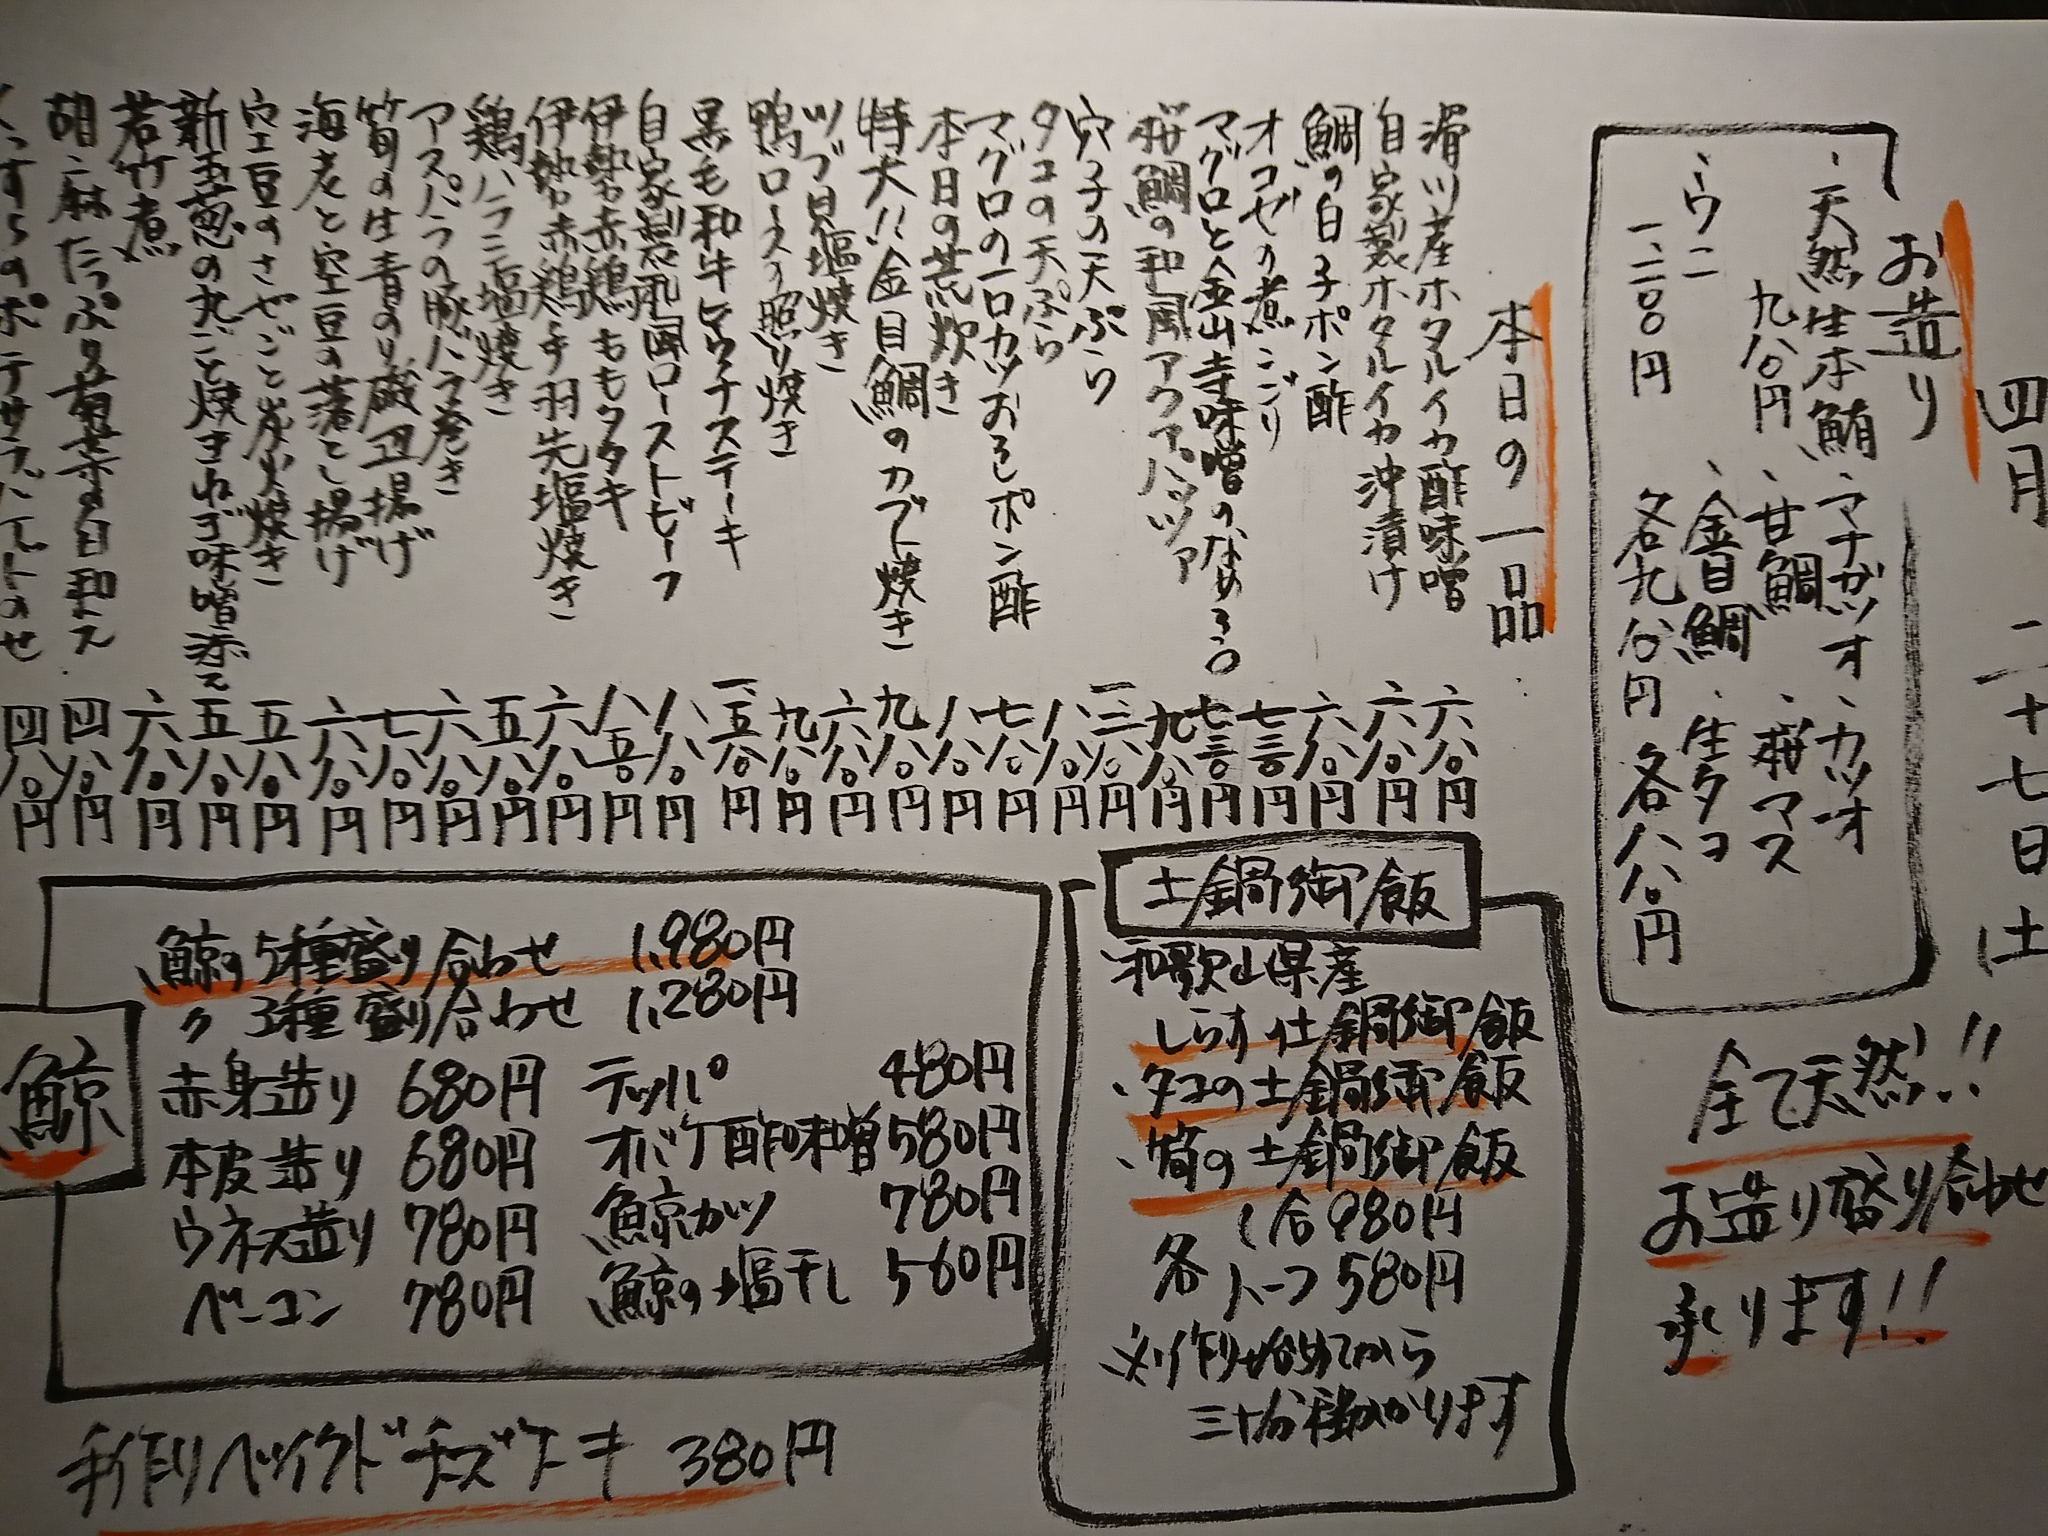 四月 二十七日(土
お造り
、天然生本鮪 、マナガツオ、カツオ
九八〇円 、甘鯛 、桜マス
、ウニ 、金目鯛 、生タコ
一、二〇〇円 各九八〇円 各八八〇円
全て天然!!
お造り盛り合わせ
承ります!!
本日の一品
滑川産ホタルイカ酢味噌 六八〇円
自家製ホタルイカ沖漬け 六八〇円
鯛の白子ポン酢 六八〇円
オコゼの煮こごり 七三〇円
マグロと金山寺味噌のなめろう 七三〇円
桜鯛の和風アクアパッツァ 九八〇円
穴子の天ぷら 一、三八〇円
タコの天ぷら 八八〇円
マグロの一口カツおろしポン酢 七八〇円
本日の荒炊き 八八〇円
特大!!金目鯛のカブト焼き 九八〇円
ツブ貝塩焼き 六八〇円
鴨ロースの照り焼き 九八〇円
黒毛和牛ヒウチステーキ 一、五八〇円
自家製和風ローストビーフ 八八〇円
伊勢赤鶏ももタタキ 八五〇円
伊勢赤鶏手羽先塩焼き 六八〇円
鶏ハラミ塩焼き 五八〇円
アスパラの豚バラ巻き 六八〇円
筍の生青のり磯辺揚げ 七八〇円
海老と空豆の落とし揚げ 六八〇円
空豆のさやごと炭火焼き 五八〇円
新玉葱の丸ごと焼きねぎ味噌添え 五八〇円
若竹煮 六八〇円
胡麻たっぷり菊菜の白和え 四八〇円
くっすらのポテサラバゲットのせ 四八〇円
土鍋御飯
、和歌山県産
しらす土鍋御飯
、タコの土鍋御飯
、筍の土鍋御飯
各 1合980円
ハーフ580円
※作り始めてから
三十分程かかります
鯨
、鯨の5種盛り合わせ 1,980円
〃 3種盛り合わせ 1,280円
赤身造り 680円 テッパ 480円
本皮造り 680円 オバケ酢味噌 580円
ウネス造り 780円 鯨カツ 780円
ベーコン 780円 鯨の塩干し 560円
手作りベイクドチーズケーキ 380円